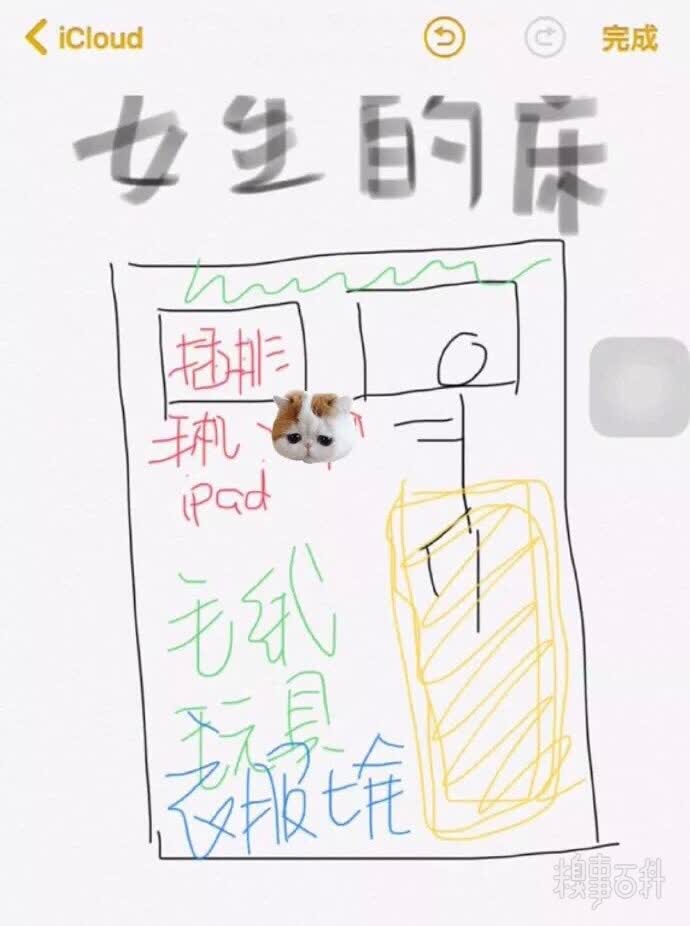 iCloud 完成
女生的床
插排
手机
iPad
毛绒
玩具
衣服堆
糗事百科